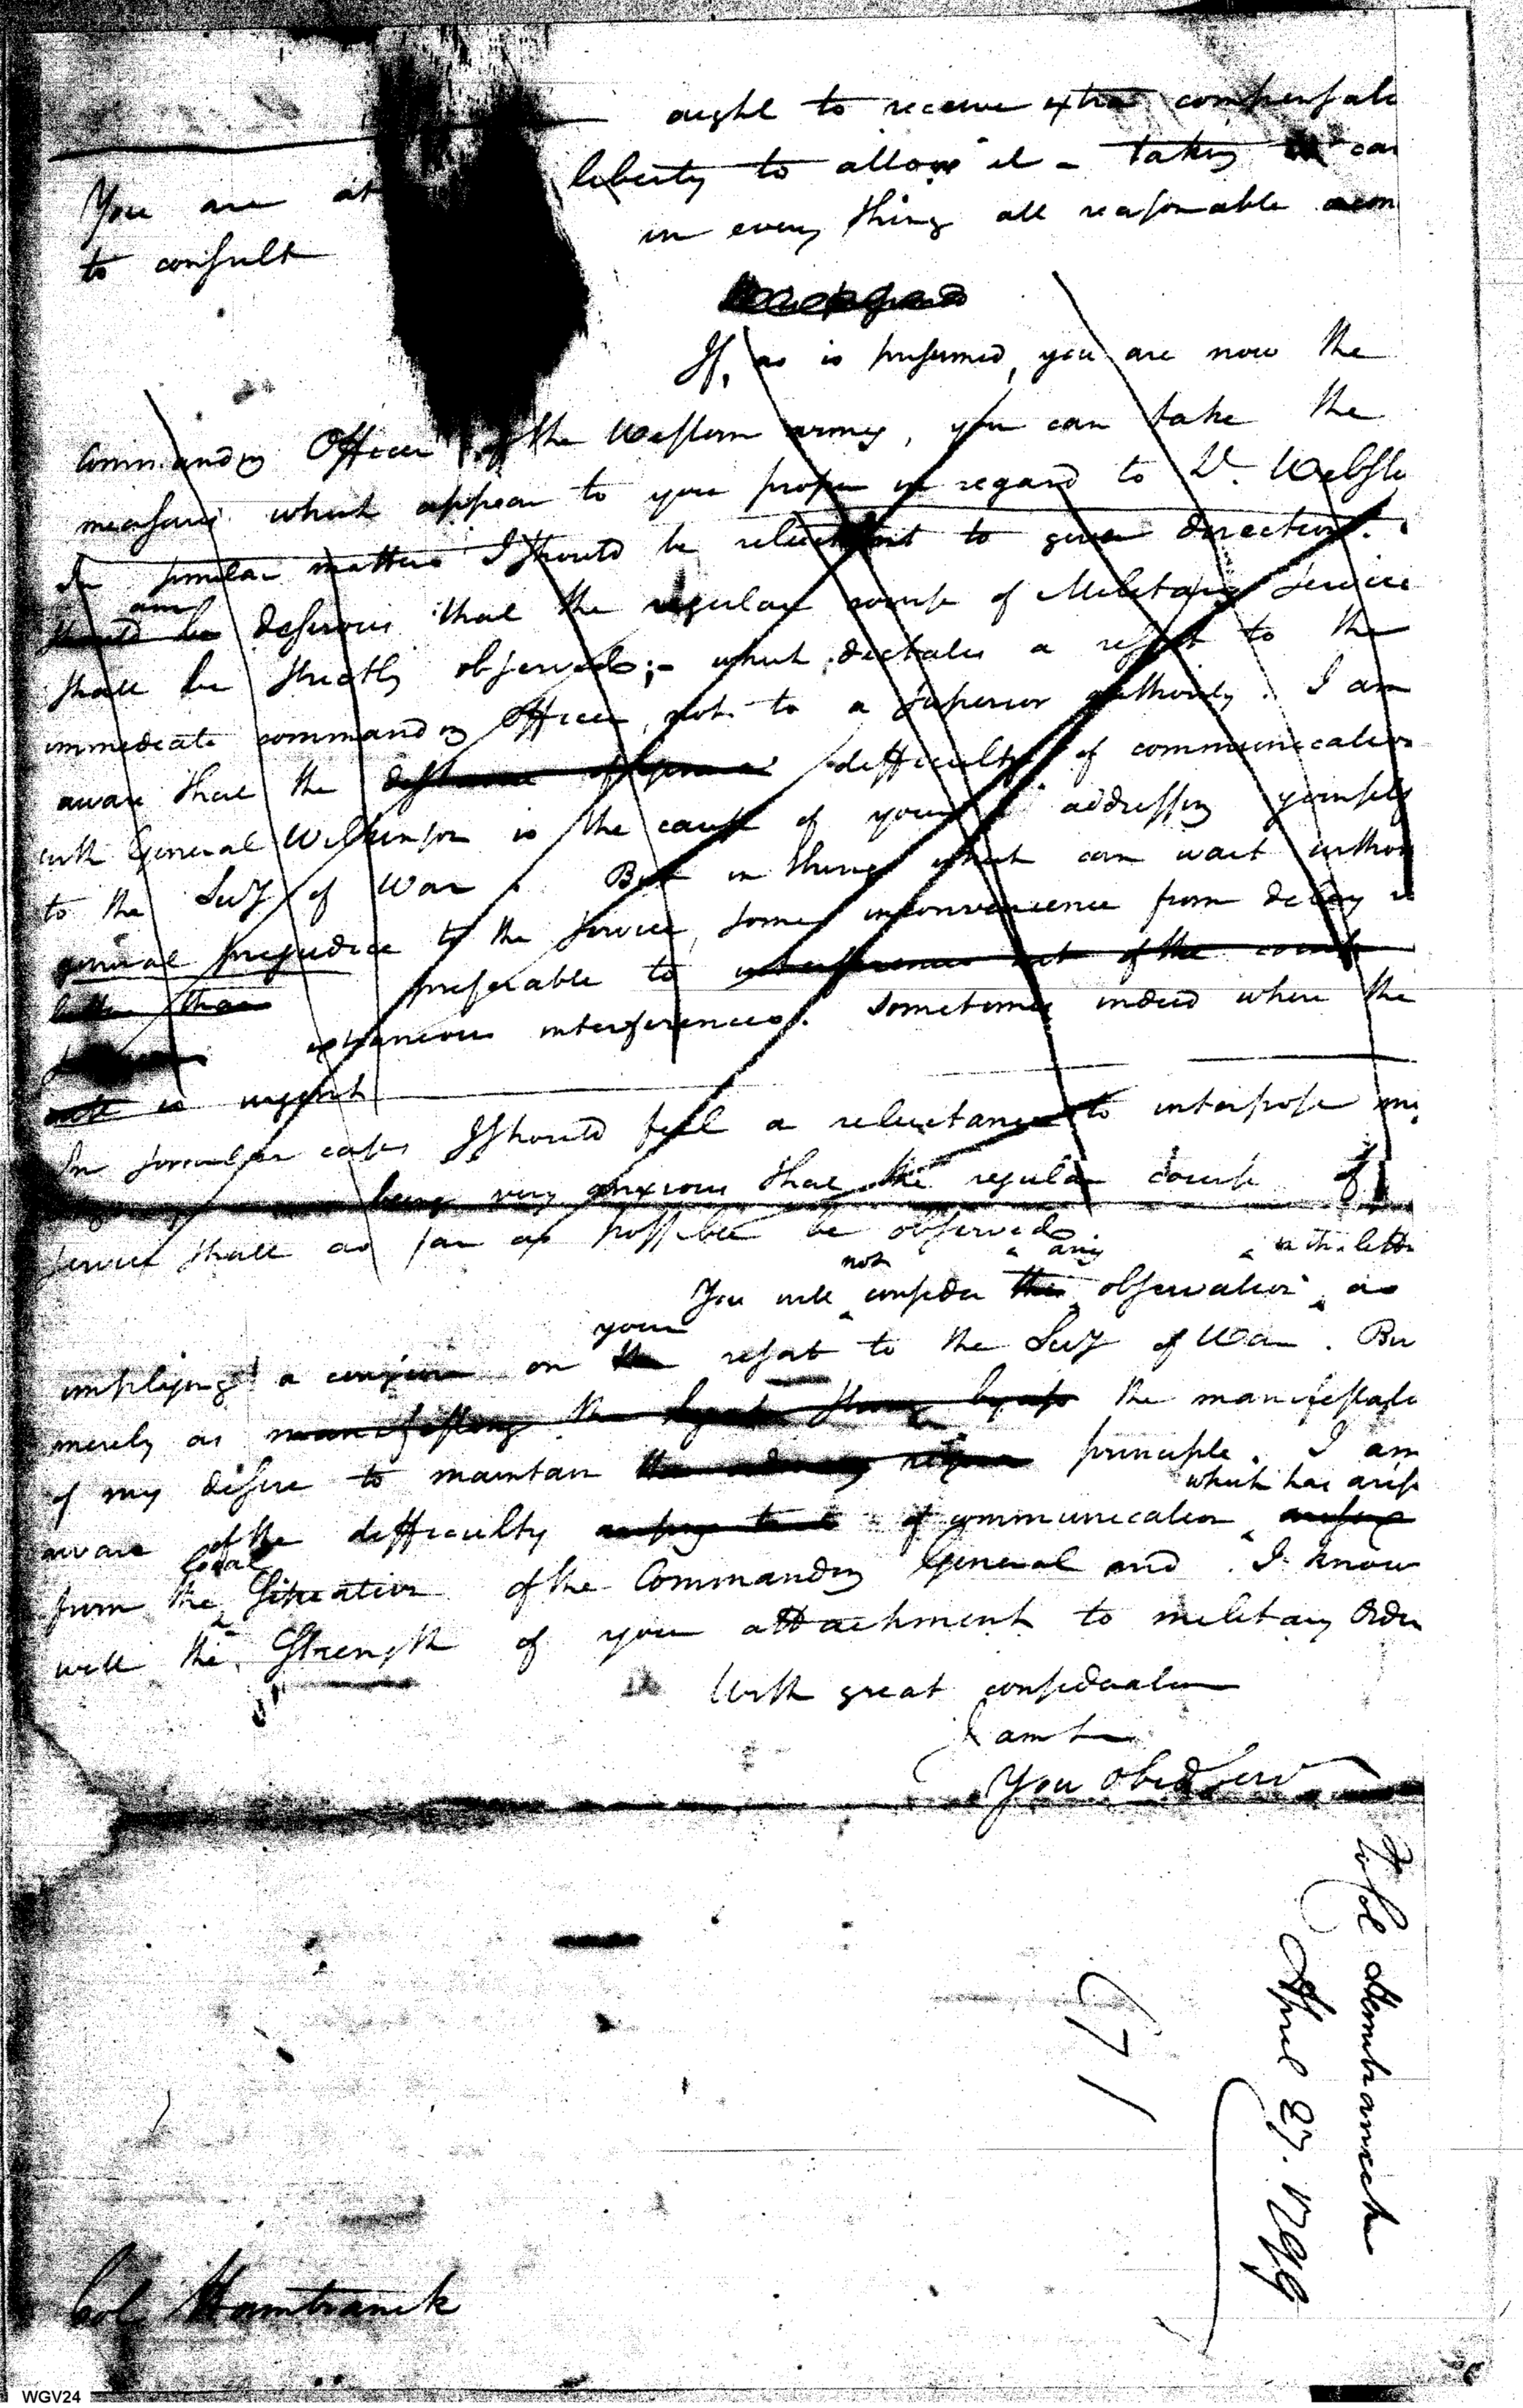 ought to receive extra compensati
You are at liberty to allow it - taking car
to consult in every thing all reasonable
If, as is presumed, you are now the
Commanding Officer of the Western army, you can take the
measures which appear to you proper in regard to Dr. Webste
In similar matters I should be reluctant to give direction.
am
should be desirous that the regular course of Military Service
shall be strictly observed;- which dictates a resort to the
immediate commanding Officer, not to a superior authority. I am
aware that the difficulty of communication
with General Wilkinson is the cause of your addressing yourself
to the Secy of War. But in things which can wait withou
general prejudice to the service, some inconvenience from delay is
better than preferable to interferences out of the course
extraneous interferences. Sometimes indeed where the
is urgent
In similar cases I should feel a reluctance to interpose my
being very anxious that the regular course of
service shall as far as possible be observed
not any in this lette
You will consider this observation as
your
implying a censure on the resort to the Secy of War. Bu
merely as manifesting the the manifestati
of my desire to maintain principle. I am
which has arise
aware of the difficulty of communication
local
from the Situation of the Commanding General and I know
well the Strength of your attachment to military Order
With great consideration
I am
You Obed Serv
To Col Hamtramck
April 27. 1799
671
Col Hamtramck
WGV24